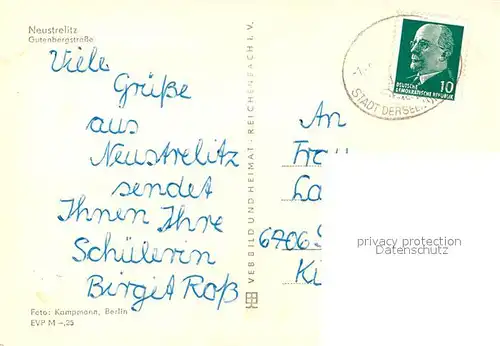 Neustrelitz
Gutenbergstraße
Viele
Grüße
aus
Neustrelitz
sendet
Ihnen Ihre
Schülerin
Birgit Roß
Foto: Kampmann, Berlin
EVP M -,25
VEB BILD UND HEIMAT · REICHENBACH I. V.
STADT DER SEE
DEUTSCHE
DEMOKRATISCHE REPUBLIK
10
An
privacy protection
Datenschutz